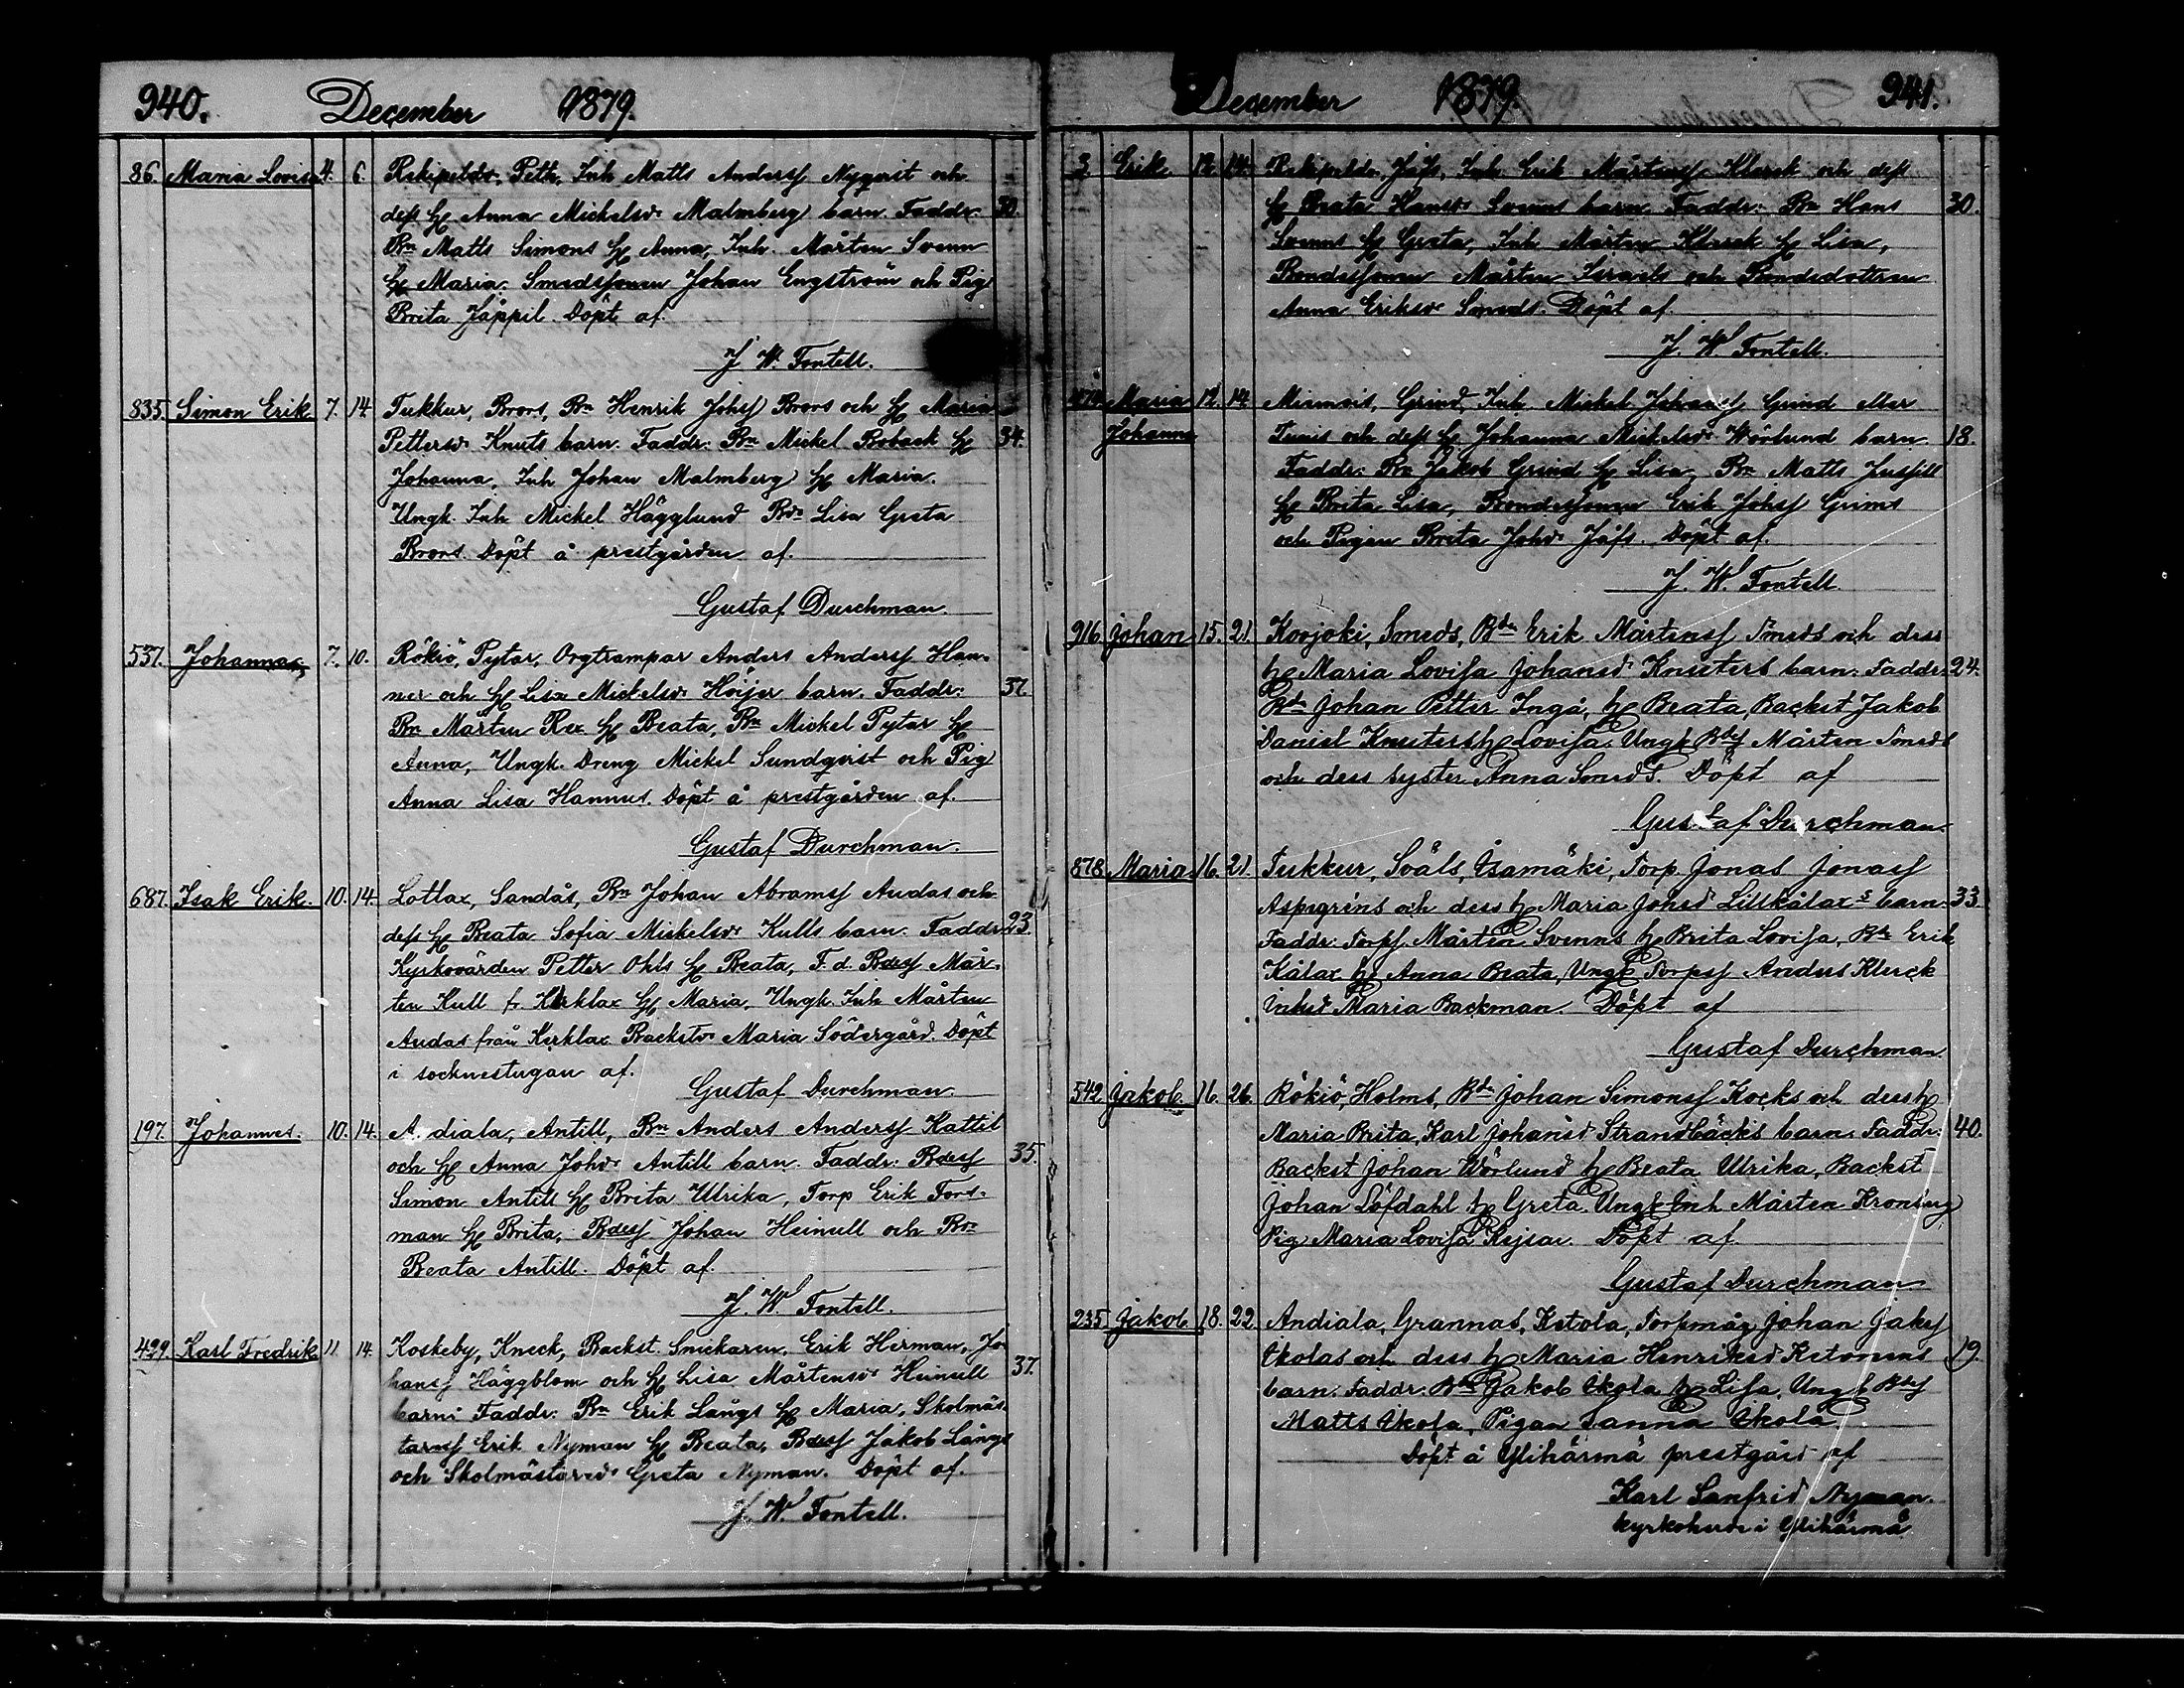 940. December 1879.
86. Maria Lovisa 4. 6. Rekipeldo, Peth, Inh Matts Anderss Nyqvist och
dess H Anna Mickelsdr Malmberg barn. Faddr: 30.
Bn Matts Simons H Anna, Inh. Mårten Svenn
H Maria. Smedssonen Johan Engström och Pig
Brita Jåppil. Döpt af.
J. W. Fontell.
835. Simon Erik 7. 14 Tukkur, Brors, Bn Henrik Johss Brors och H Maria
Pettersdr Knuts barn. Faddr: Bn Mickel Roback H 34.
Johanna, Inh Johan Malmberg H Maria.
Ungk. Inh Mickel Hägglund Bdr Lisa Greta
Brors. Döpt å prestgården af.
Gustaf Durchman.
537. Johannes 7. 10. Rökiö, Pytar, Orgtrampar Anders Anderss Han-
ner och H Lisa Mickelsdr Höijer barn. Faddr: 37.
Bn Mårten Rex H Beata, Bn Mickel Pytar H
Anna, Ungk. Dreng Mickel Sundqvist och Pig
Anna Lisa Hannus. Döpt å prestgården af.
Gustaf Durchman.
687. Isak Erik. 10. 14. Lotlax, Sandås, Bn Johan Abramss Audas och
dess H Beata Sofia Mickelsdr Kulls barn. Faddr 23.
Kyrkovärden Petter Ohls H Beata, F. d. Bdess Mår-
ten Kull fr. Kärklax H Maria, Ungk. Inh Mårten
Audas från Kerklax Backstdr Maria Södergård. Döpt
i socknestugan af.
Gustaf Durchman.
197. Johannes. 10. 14. A. diala, Antill, Bn Anders Anderss Kattil
och H Anna Johdr Antill barn. Faddr: Bdess 35.
Simon Antill H Brita Ulrika, Torp Erik Fors-
man H Brita, Bdess Johan Heinull och Bdr
Beata Antill. Döpt af.
J. W. Fontell.
499. Karl Fredrik 11. 14. Koskeby, Kneck, Backst. Snickaren, Erik Herman, Jo
hanss Häggblom och H Lisa Mårtensdr Heinull 37.
barn: Faddr: Bn Erik Långs H Maria, Skolmäs-
taress Erik Nyman H Beata, Bdess Jakob Långs
och Skolmästaredr Greta Nyman. Döpt af.
J. W. Fontell.
December 1879. 941.
3 Erik 12. 14. Rekipeldo, Jåfs, Inh Erik Mårtenss Klerck och dess
H Beata Hansdr Svenns barn. Faddr: Bn Hans 30.
Svenns H Greta, Inh Mårten Klerck H Lisa,
Bondessonen Mårten Israels och Bondedottren
Anna Eriksdr Smeds. Döpt af.
J. W. Fontell.
Maria 12 14 Miemois, Grind, Inh. Mickel Johanss Grind eller
Johanna Tunis och dess H Johanna Mickelsdr Wörlund barn. 18.
Faddr: Bn Jakob Grind H Lisa, Bn Matts Jussill
H Brita Lisa, Bondessonen Erik Johss Grims
och Pigan Brita Johdr Jåfs. Döpt af.
J. W. Fontell
916. Johan 15. 21. Kovjoki, Smeds, Bdn Erik Mårtenss Smeds och dess
H Maria Lovisa Johansdr Knuters barn: Faddr: 24.
Bdn Johan Petter Ingå, H Beata, Backst Jakob
Daniel Knuters H Lovisa. Ungk Bdss Mårten Smeds
och dess syster Anna Smeds. Döpt af
Gustaf Durchman.
878 Maria 16. 21. Tukkur, Svåls, Åsamäki, Torp. Jonas Jonass
Aspegrens och dess H Maria Johsdr Lillkålax's barn. 33.
Faddr: Torps. Mårten Svenns H Brita Lovisa, Bdn Erik
Kålax H Anna Beata, Ungk Torpss Anders Klerck
Inhdr Maria Backman. Döpt af
Gustaf Durchman.
542 Jakob. 16. 26. Rökiö, Holms, Bdn Johan Simonss Kocks och dess H
Maria Brita, Karl Johansdr Strandbäcks barn. Faddr: 40.
Backst Johan Wörlund H Beata Ulrika, Backst
Johan Löfdahl H Greta. Ungk Inh Mårten Kronberg
Pig Maria Lovisa Kejsar. Döpt af
Gustaf Durchman.
235 Jakob 18. 22. Andiala, Grannas, Ketola, Torpmåg Johan Jakss
Ekolas och dess H Maria Henriksdr Ketonens 19.
barn. Faddr: Bdn Jakob Ekola H Lisa, Ungk Bdss
Matts Ekola, Pigan Sanna Ekola
Döpt å Ylihärmä prestgård af
Karl Sanfrid Nyman.
kyrkoherde i Ylihärmä